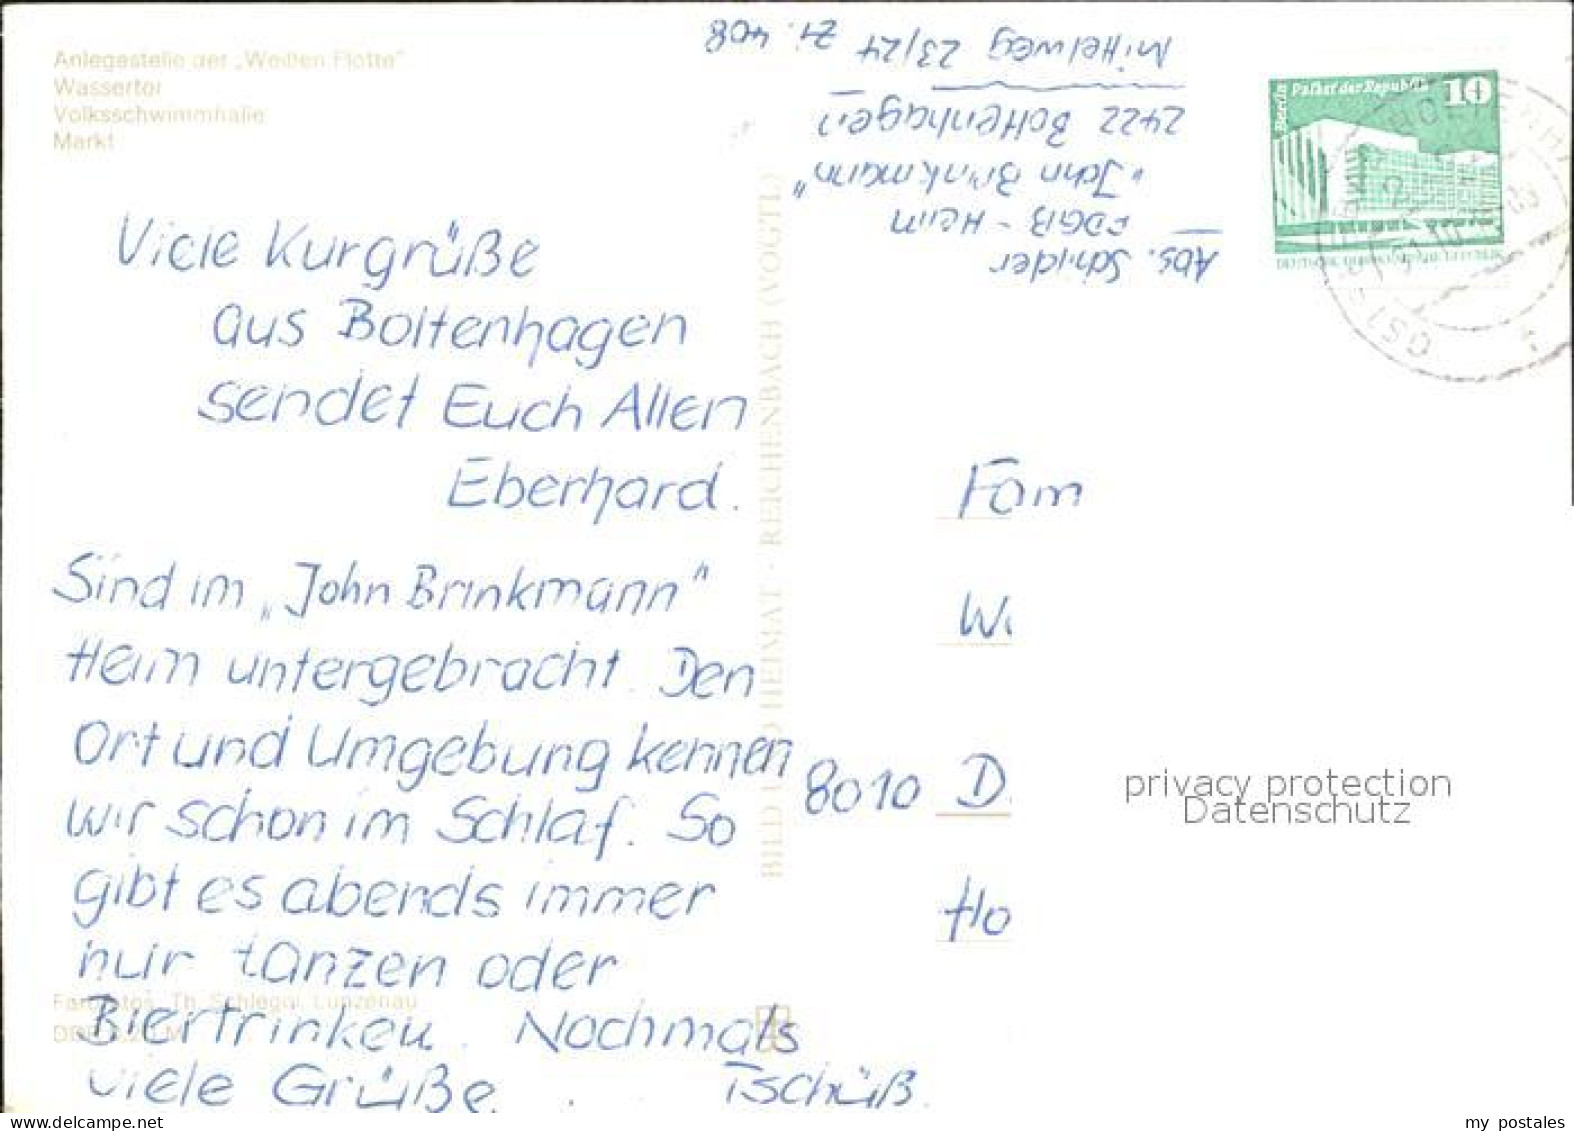 Anlegestelle der „Weißen Flotte"
Wassertor
Volksschwimmhalle
Markt
Viele Kurgrüße
aus Boltenhagen
sendet Euch Allen
Eberhard.
Sind im „John Brinkmann"
Heim untergebracht. Den
Ort und Umgebung kennen
wir schon im Schlaf. So
gibt es abends immer
nur tanzen oder
Biertrinken. Nochmals
viele Grüße. Tschüß.
Farbfotos: Th. Schlegel, Lunzenau
BILD UND HEIMAT · REICHENBACH (VOGTL)
Abs. Schider
FDGB - Heim
„John Brinkmann"
2422 Boltenhagen
Mittelweg 23/24 Zi. 408
Berlin Palast der Republik 10
DEUTSCHE DEMOKRATISCHE REPUBLIK
Fam
Wi
8010 D.
Ho
privacy protection
Datenschutz
www.delcampe.net
my_postales